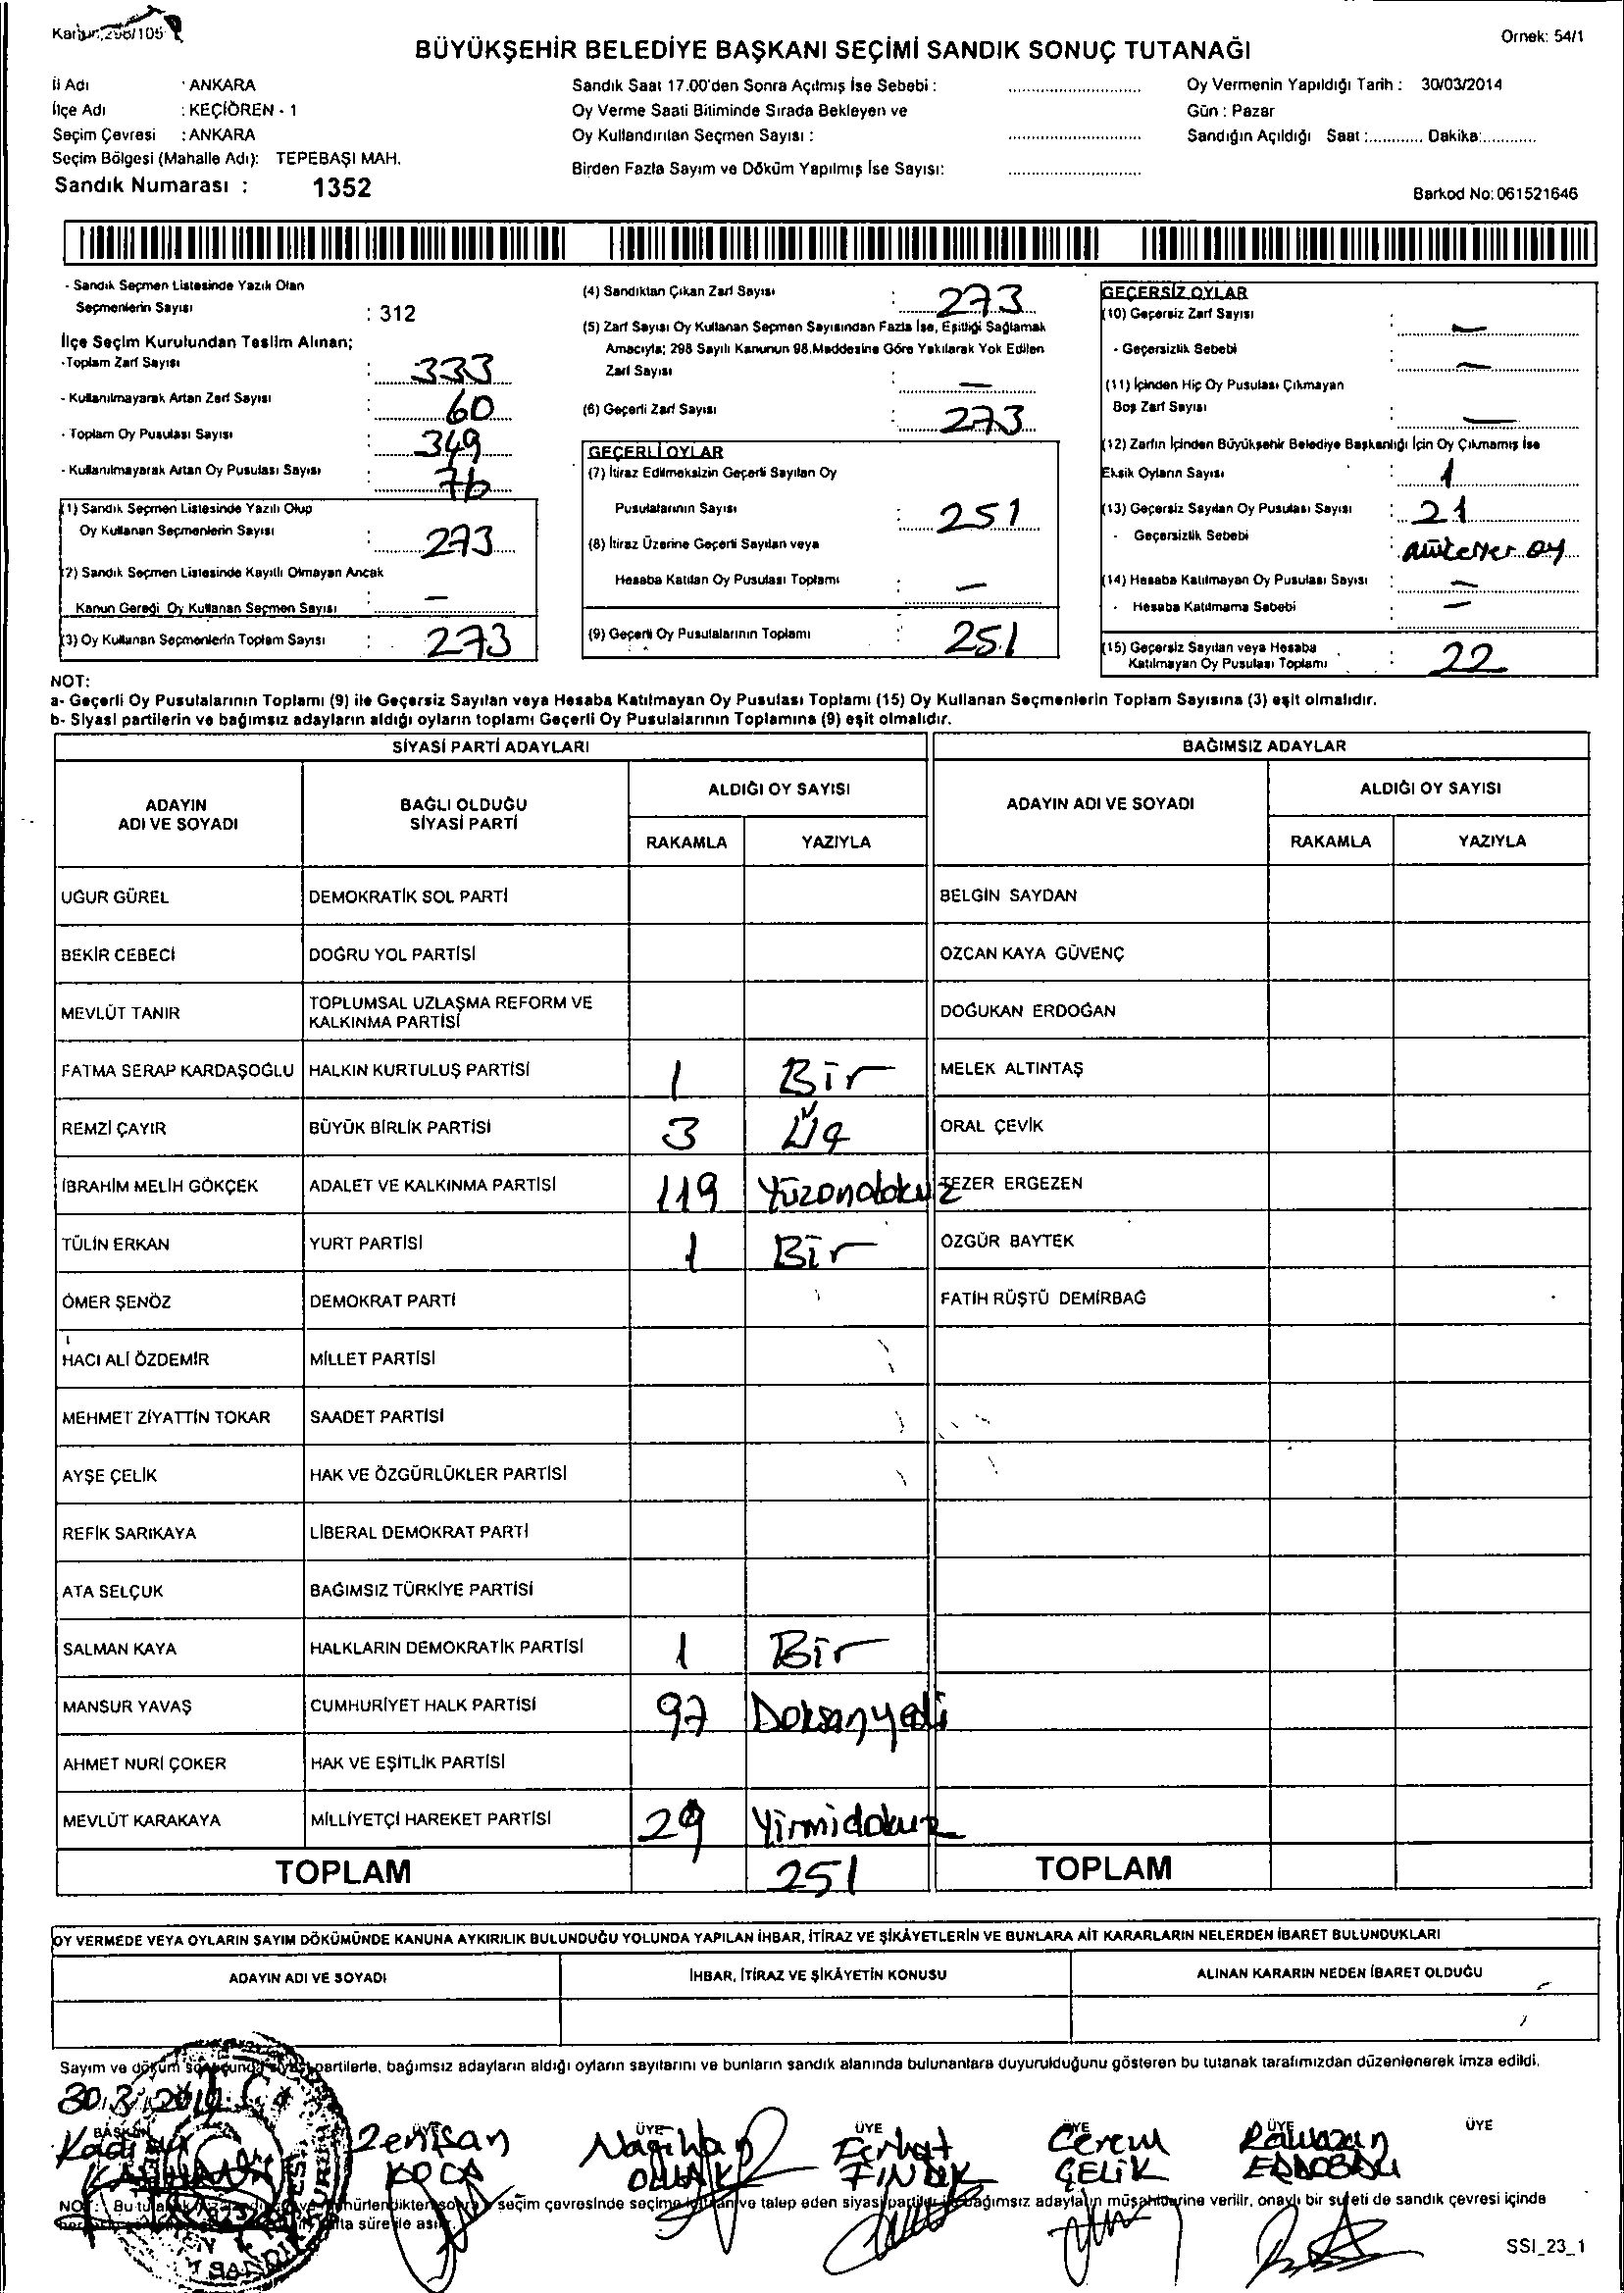 Ornek: 54/1
BÜYÜKŞEHİR BELEDİYE BAŞKANI SEÇİMİ SANDIK SONUÇ TUTANAĞI
İl Adı : ANKARA
İlçe Adı : KEÇİÖREN - 1
Seçim Çevresi : ANKARA
Seçim Bölgesi (Mahalle Adı): TEPEBAŞI MAH.
Sandık Numarası : 1352
Sandık Saat 17.00'den Sonra Açılmış İse Sebebi :
Oy Verme Saati Bitiminde Sırada Bekleyen ve
Oy Kullandırılan Seçmen Sayısı :
Birden Fazla Sayım ve Döküm Yapılmış İse Sayısı:
Oy Vermenin Yapıldığı Tarih : 30/03/2014
Gün : Pazar
Sandığın Açıldığı Saat :............ Dakika:............
Barkod No: 061521646
- Sandık Seçmen Listesinde Yazılı Olan
Seçmenlerin Sayısı : 312
İlçe Seçim Kurulundan Teslim Alınan;
-Toplam Zarf Sayısı : 333
- Kullanılmayarak Artan Zarf Sayısı : 60
- Toplam Oy Pusulası Sayısı : 349
- Kullanılmayarak Artan Oy Pusulası Sayısı 76
(1) Sandık Seçmen Listesinde Yazılı Olup
Oy Kullanan Seçmenlerin Sayısı : 273
(2) Sandık Seçmen Listesinde Kayıtlı Olmayan Ancak
Kanun Gereği Oy Kullanan Seçmen Sayısı : —
(3) Oy Kullanan Seçmenlerin Toplam Sayısı : 273
(4) Sandıktan Çıkan Zarf Sayısı : 273
(5) Zarf Sayısı Oy Kullanan Seçmen Sayısından Fazla İse, Eşitliği Sağlamak
Amacıyla; 298 Sayılı Kanunun 98.Maddesine Göre Yakılarak Yok Edilen
Zarf Sayısı : —
(6) Geçerli Zarf Sayısı : 273
GEÇERLİ OYLAR
(7) İtiraz Edilmeksizin Geçerli Sayılan Oy
Pusulalarının Sayısı : 251
(8) İtiraz Üzerine Geçerli Sayılan veya
Hesaba Katılan Oy Pusulası Toplamı : —
(9) Geçerli Oy Pusulalarının Toplamı : 251
GEÇERSİZ OYLAR
(10) Geçersiz Zarf Sayısı : —
- Geçersizlik Sebebi : —
(11) İçinden Hiç Oy Pusulası Çıkmayan
Boş Zarf Sayısı : —
(12) Zarfın İçinden Büyükşehir Belediye Başkanlığı İçin Oy Çıkmamış İse
Eksik Oyların Sayısı : 1
(13) Geçersiz Sayılan Oy Pusulası Sayısı : 21
- Geçersizlik Sebebi : oy
(14) Hesaba Katılmayan Oy Pusulası Sayısı : —
- Hesaba Katılmama Sebebi : —
(15) Geçersiz Sayılan veya Hesaba
Katılmayan Oy Pusulası Toplamı : 22
NOT:
a- Geçerli Oy Pusulalarının Toplamı (9) ile Geçersiz Sayılan veya Hesaba Katılmayan Oy Pusulası Toplamı (15) Oy Kullanan Seçmenlerin Toplam Sayısına (3) eşit olmalıdır.
b- Siyasi partilerin ve bağımsız adayların aldığı oyların toplamı Geçerli Oy Pusulalarının Toplamına (9) eşit olmalıdır.
SİYASİ PARTİ ADAYLARI BAĞIMSIZ ADAYLAR
ADAYIN ADI VE SOYADI BAĞLI OLDUĞU SİYASİ PARTİ ALDIĞI OY SAYISI ADAYIN ADI VE SOYADI ALDIĞI OY SAYISI
RAKAMLA YAZIYLA RAKAMLA YAZIYLA
UĞUR GÜREL DEMOKRATİK SOL PARTİ BELGİN SAYDAN
BEKİR CEBECİ DOĞRU YOL PARTİSİ ÖZCAN KAYA GÜVENÇ
MEVLÜT TANIR TOPLUMSAL UZLAŞMA REFORM VE KALKINMA PARTİSİ DOĞUKAN ERDOĞAN
FATMA SERAP KARDAŞOĞLU HALKIN KURTULUŞ PARTİSİ 1 Bir MELEK ALTINTAŞ
REMZİ ÇAYIR BÜYÜK BİRLİK PARTİSİ 3 Üç ORAL ÇEVİK
İBRAHİM MELİH GÖKÇEK ADALET VE KALKINMA PARTİSİ 119 Yüzondokuz TEZER ERGEZEN
TÜLİN ERKAN YURT PARTİSİ 1 Bir ÖZGÜR BAYTEK
ÖMER ŞENÖZ DEMOKRAT PARTİ FATİH RÜŞTÜ DEMİRBAĞ
HACI ALİ ÖZDEMİR MİLLET PARTİSİ
MEHMET ZİYATTİN TOKAR SAADET PARTİSİ
AYŞE ÇELİK HAK VE ÖZGÜRLÜKLER PARTİSİ
REFİK SARIKAYA LİBERAL DEMOKRAT PARTİ
ATA SELÇUK BAĞIMSIZ TÜRKİYE PARTİSİ
SALMAN KAYA HALKLARIN DEMOKRATİK PARTİSİ 1 Bir
MANSUR YAVAŞ CUMHURİYET HALK PARTİSİ 97 Doksanyedi
AHMET NURİ ÇOKER HAK VE EŞİTLİK PARTİSİ
MEVLÜT KARAKAYA MİLLİYETÇİ HAREKET PARTİSİ 29 Yirmidokuz
TOPLAM 251 TOPLAM
OY VERMEDE VEYA OYLARIN SAYIM DÖKÜMÜNDE KANUNA AYKIRILIK BULUNDUĞU YOLUNDA YAPILAN İHBAR, İTİRAZ VE ŞİKÂYETLERİN VE BUNLARA AİT KARARLARIN NELERDEN İBARET BULUNDUKLARI
ADAYIN ADI VE SOYADI İHBAR, İTİRAZ VE ŞİKÂYETİN KONUSU ALINAN KARARIN NEDEN İBARET OLDUĞU
Sayım ve döküm partilerle, bağımsız adayların aldığı oyların sayılarını ve bunların sandık alanında bulunanlara duyurulduğunu gösteren bu tutanak tarafımızdan düzenlenerek imza edildi.
30.3.2014
BAŞKAN ÜYE ÜYE ÜYE ÜYE ÜYE
KOCA Nagihan Ferhat FINDIK Cerem ÇELİK Ramazan
NOT: seçim çevresinde seçime ve talep eden siyasi bağımsız adayların müşahitlerine verilir, onaylı bir sureti de sandık çevresi içinde
SSI_23_1